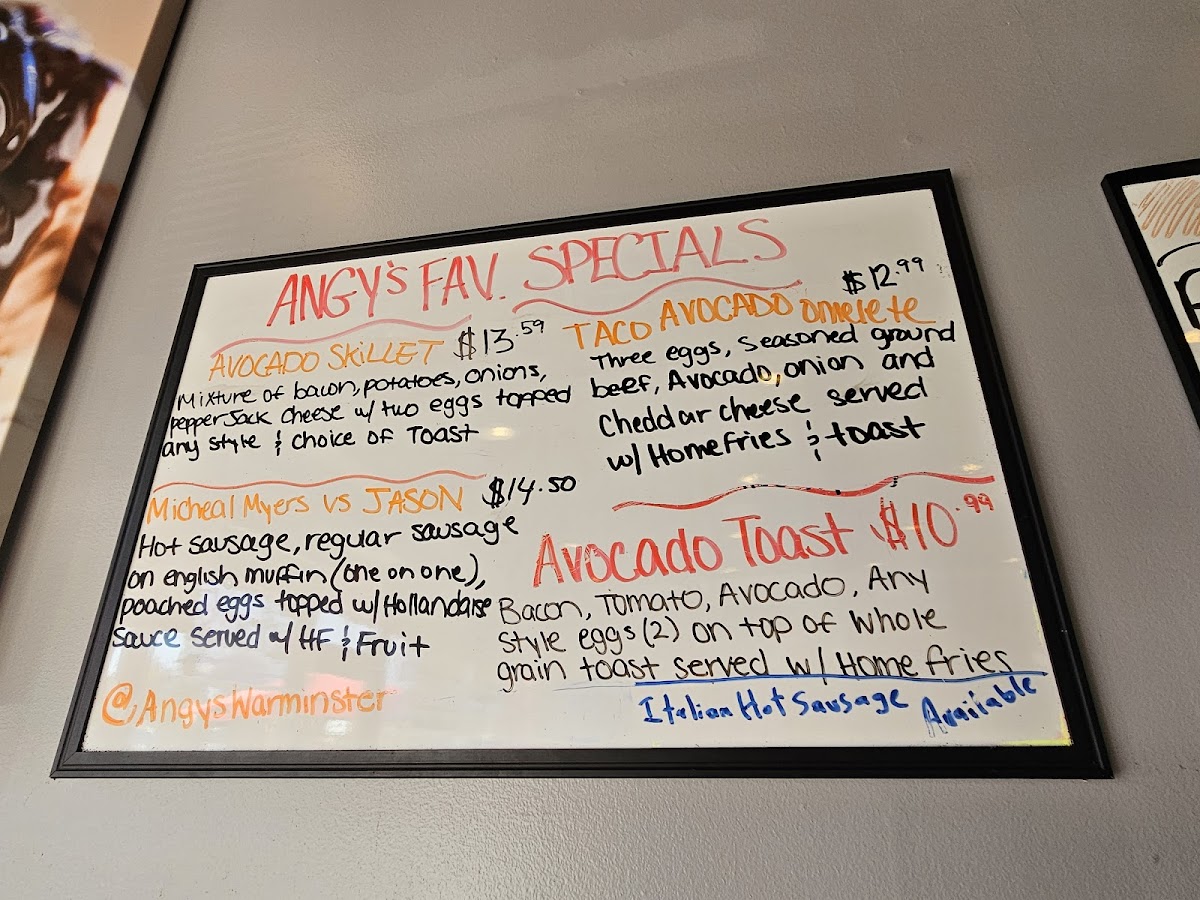 ANGY'S FAV. SPECIALS
AVOCADO SKILLET $13.59
Mixture of bacon, potatoes, onions,
pepperJack cheese w/ two eggs topped
any style & choice of Toast
Micheal Myers vs JASON $14.50
Hot sausage, regular sausage
on english muffin (one on one),
poached eggs topped w/ Hollandaise
sauce served w/ HF & Fruit
@AngysWarminster
$12.99
TACO AVOCADO omelete
Three eggs, seasoned ground
beef, Avocado, onion and
Cheddar cheese served
w/ Homefries & toast
Avocado Toast $10.99
Bacon, Tomato, Avocado, Any
style eggs (2) on top of whole
grain toast served w/ Home fries
Italian Hot Sausage Available